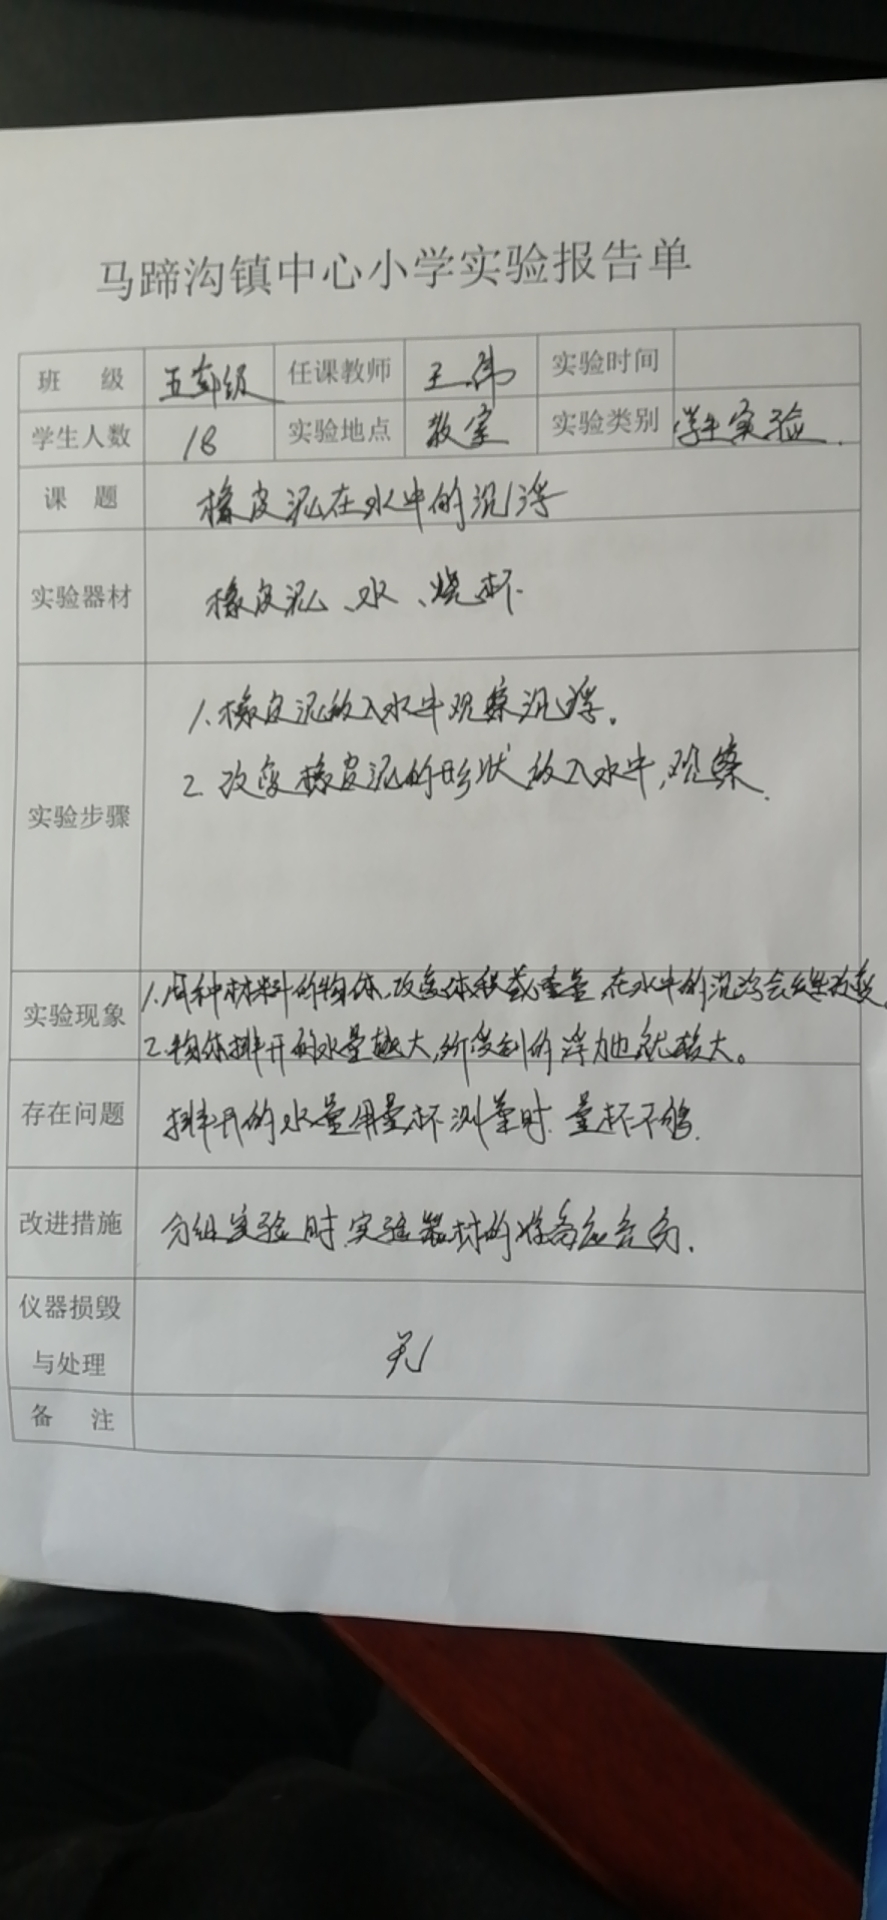 马蹄沟镇中心小学实验报告单
班 级 五年级 任课教师 王伟 实验时间
学生人数 18 实验地点 教室 实验类别 学生实验.
课 题 橡皮泥在水中的沉浮
实验器材 橡皮泥、水、烧杯.
实验步骤
1.橡皮泥放入水中观察沉浮。
2.改变橡皮泥的形状放入水中,观察.
实验现象
1.同种材料的物体,改变体积或重量,在水中的沉浮会发生改变.
2.物体排开的水量越大,所受到的浮力也就越大。
存在问题 排开的水量用量杯测量时.量杯不够.
改进措施 分组实验时.实验器材的准备应充分.
仪器损毁
与处理 无
备 注